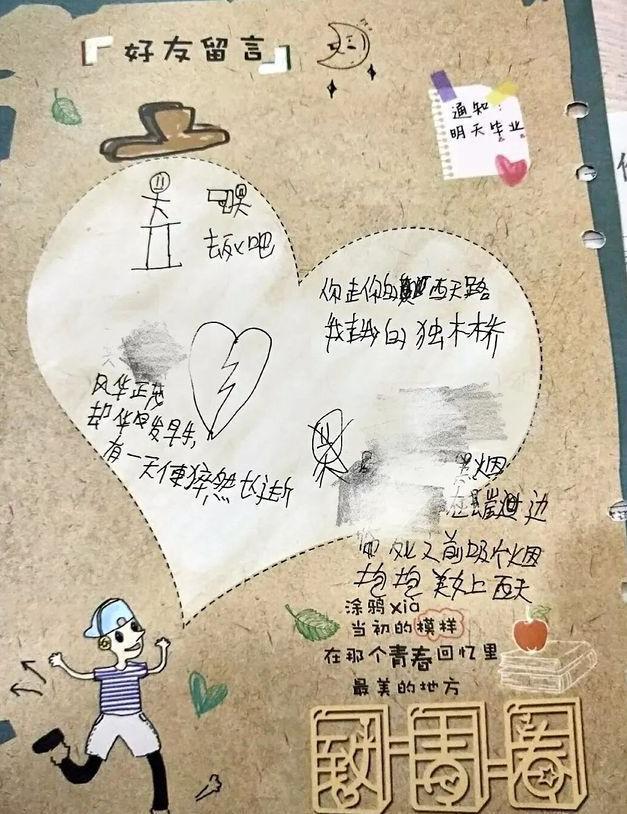 好友留言
通知:
明天毕业
去死吧
你走你的西天路
我走我的独木桥
风华正茂
却华早发早生,
有一天便猝然长逝
烟
在嘴边
前吸个烟
抱抱美女上西天
涂鸦xia
当初的模样
在那个青春回忆里
最美的地方
致青春